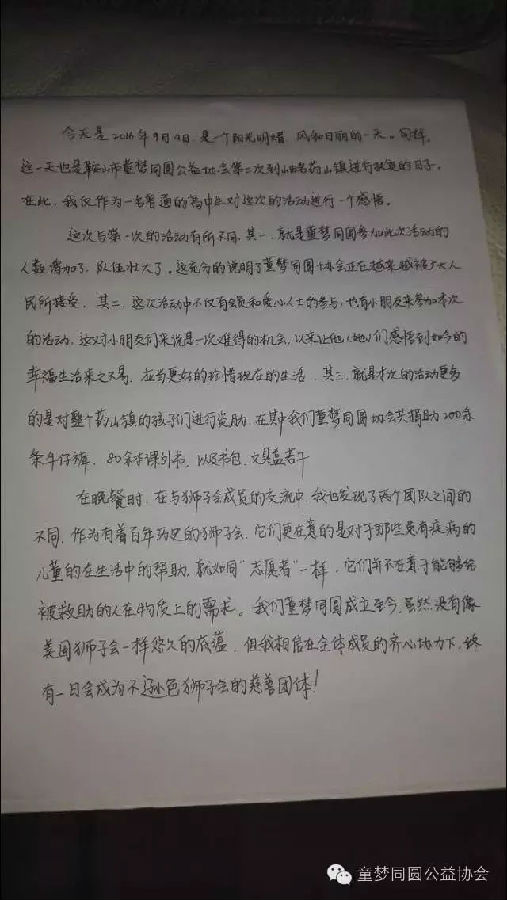 今天是2016年9月4日,是一个阳光明媚,风和日丽的一天。同样,
这一天也是鞍山市童梦同圆公益协会第二次到岫岩药山镇进行扶贫的日子。
在此,我仅作为一名普通的高中生对这次的活动进行一个感悟。
这次与第一次的活动有所不同,其一,就是童梦同圆参加此次活动的
人数增加了,队伍壮大了。这充分的说明了童梦同圆协会正在越来越被广大人
民所接受,其二,这次活动中不仅有会员和爱心人士的参与,也有小朋友来参加本次
的活动,这对小朋友们来说是一次难得的机会,以来让他(她)们感悟到如今的
幸福生活来之不易,应当更好的珍惜现在的生活,其三,就是本次的活动更多
的是对整个药山镇的孩子们进行资助,在其中我们童梦同圆协会共捐助200余
条牛仔裤,80余本课外书,以及书包,文具盒若干
在晚餐时,在与狮子会成员的交流中,我也发现了两个团队之间的
不同,作为有着百年历史的狮子会,它们更在意的是对于那些患有疾病的
儿童的在生活中的帮助,就如同"志愿者"一样,它们并不在意于能够给
被救助的人在物质上的需求。我们童梦同圆成立至今,虽然没有像
美国狮子会一样悠久的底蕴,但我相信在全体成员的齐心协力下,终
有一日会成为不逊色狮子会的慈善团体!
童梦同圆公益协会